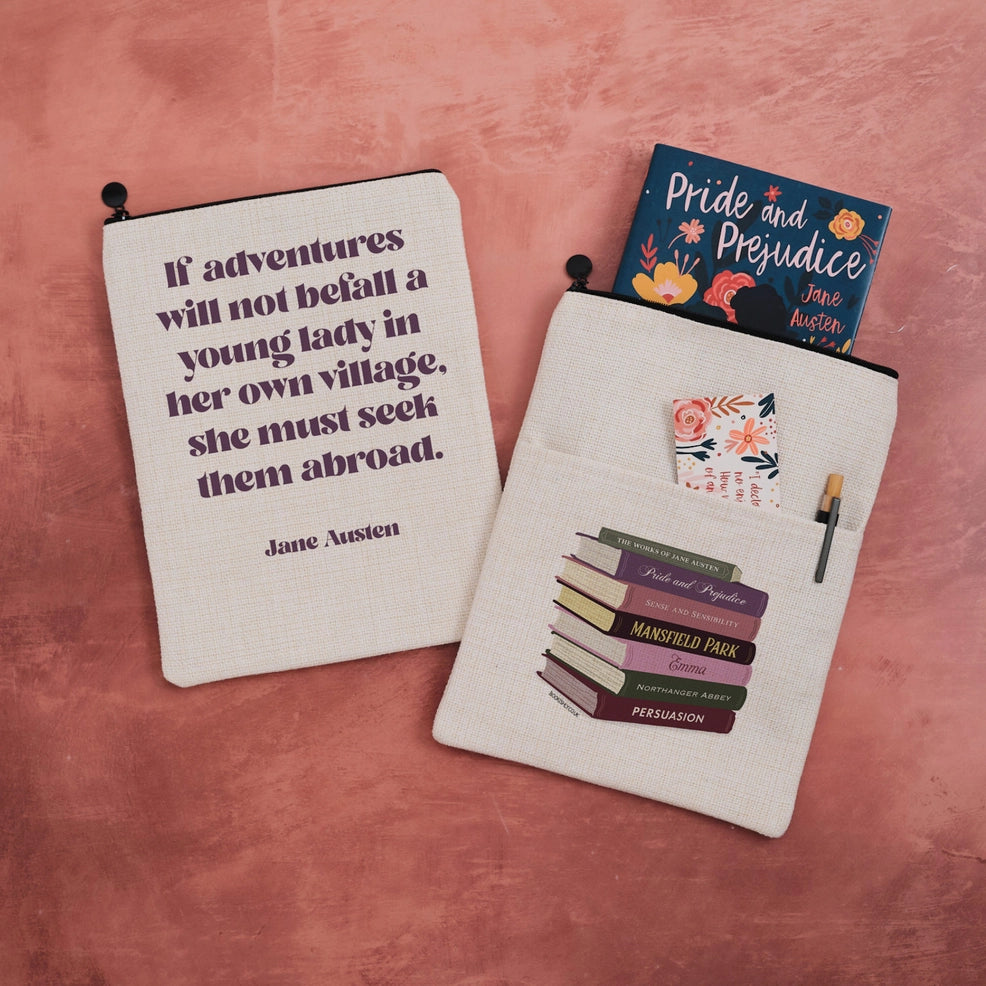 If adventures
will not befall a
young lady in
her own village,
she must seek
them abroad.
Jane Austen
Pride and
Prejudice
Jane
Austen
"I decla
no enj
of an
THE WORKS OF JANE AUSTEN
Pride and Prejudice
SENSE AND SENSIBILITY
MANSFIELD PARK
Emma
NORTHANGER ABBEY
PERSUASION